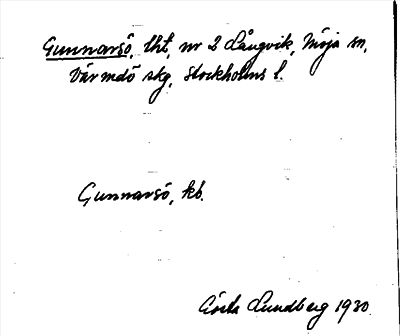 Gunnarsö, lht, nr 2 Långvik, Möja sn,
Värmdö skg, Stockholms l.
Gunnarsö, kb.
Gösta Lundberg 1930.